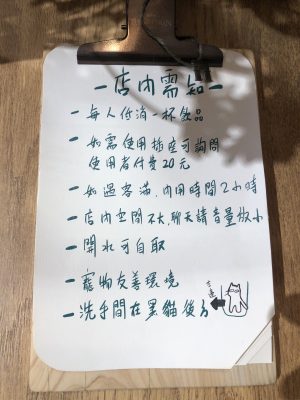 －店內需知－
－每人低消一杯飲品
－如需使用插座可詢問
使用者付費20元
－如遇客滿，內用時間2小時
－店內空間不大聊天請音量放小
－開水可自取
－寵物友善環境
－洗手間在黑貓後方